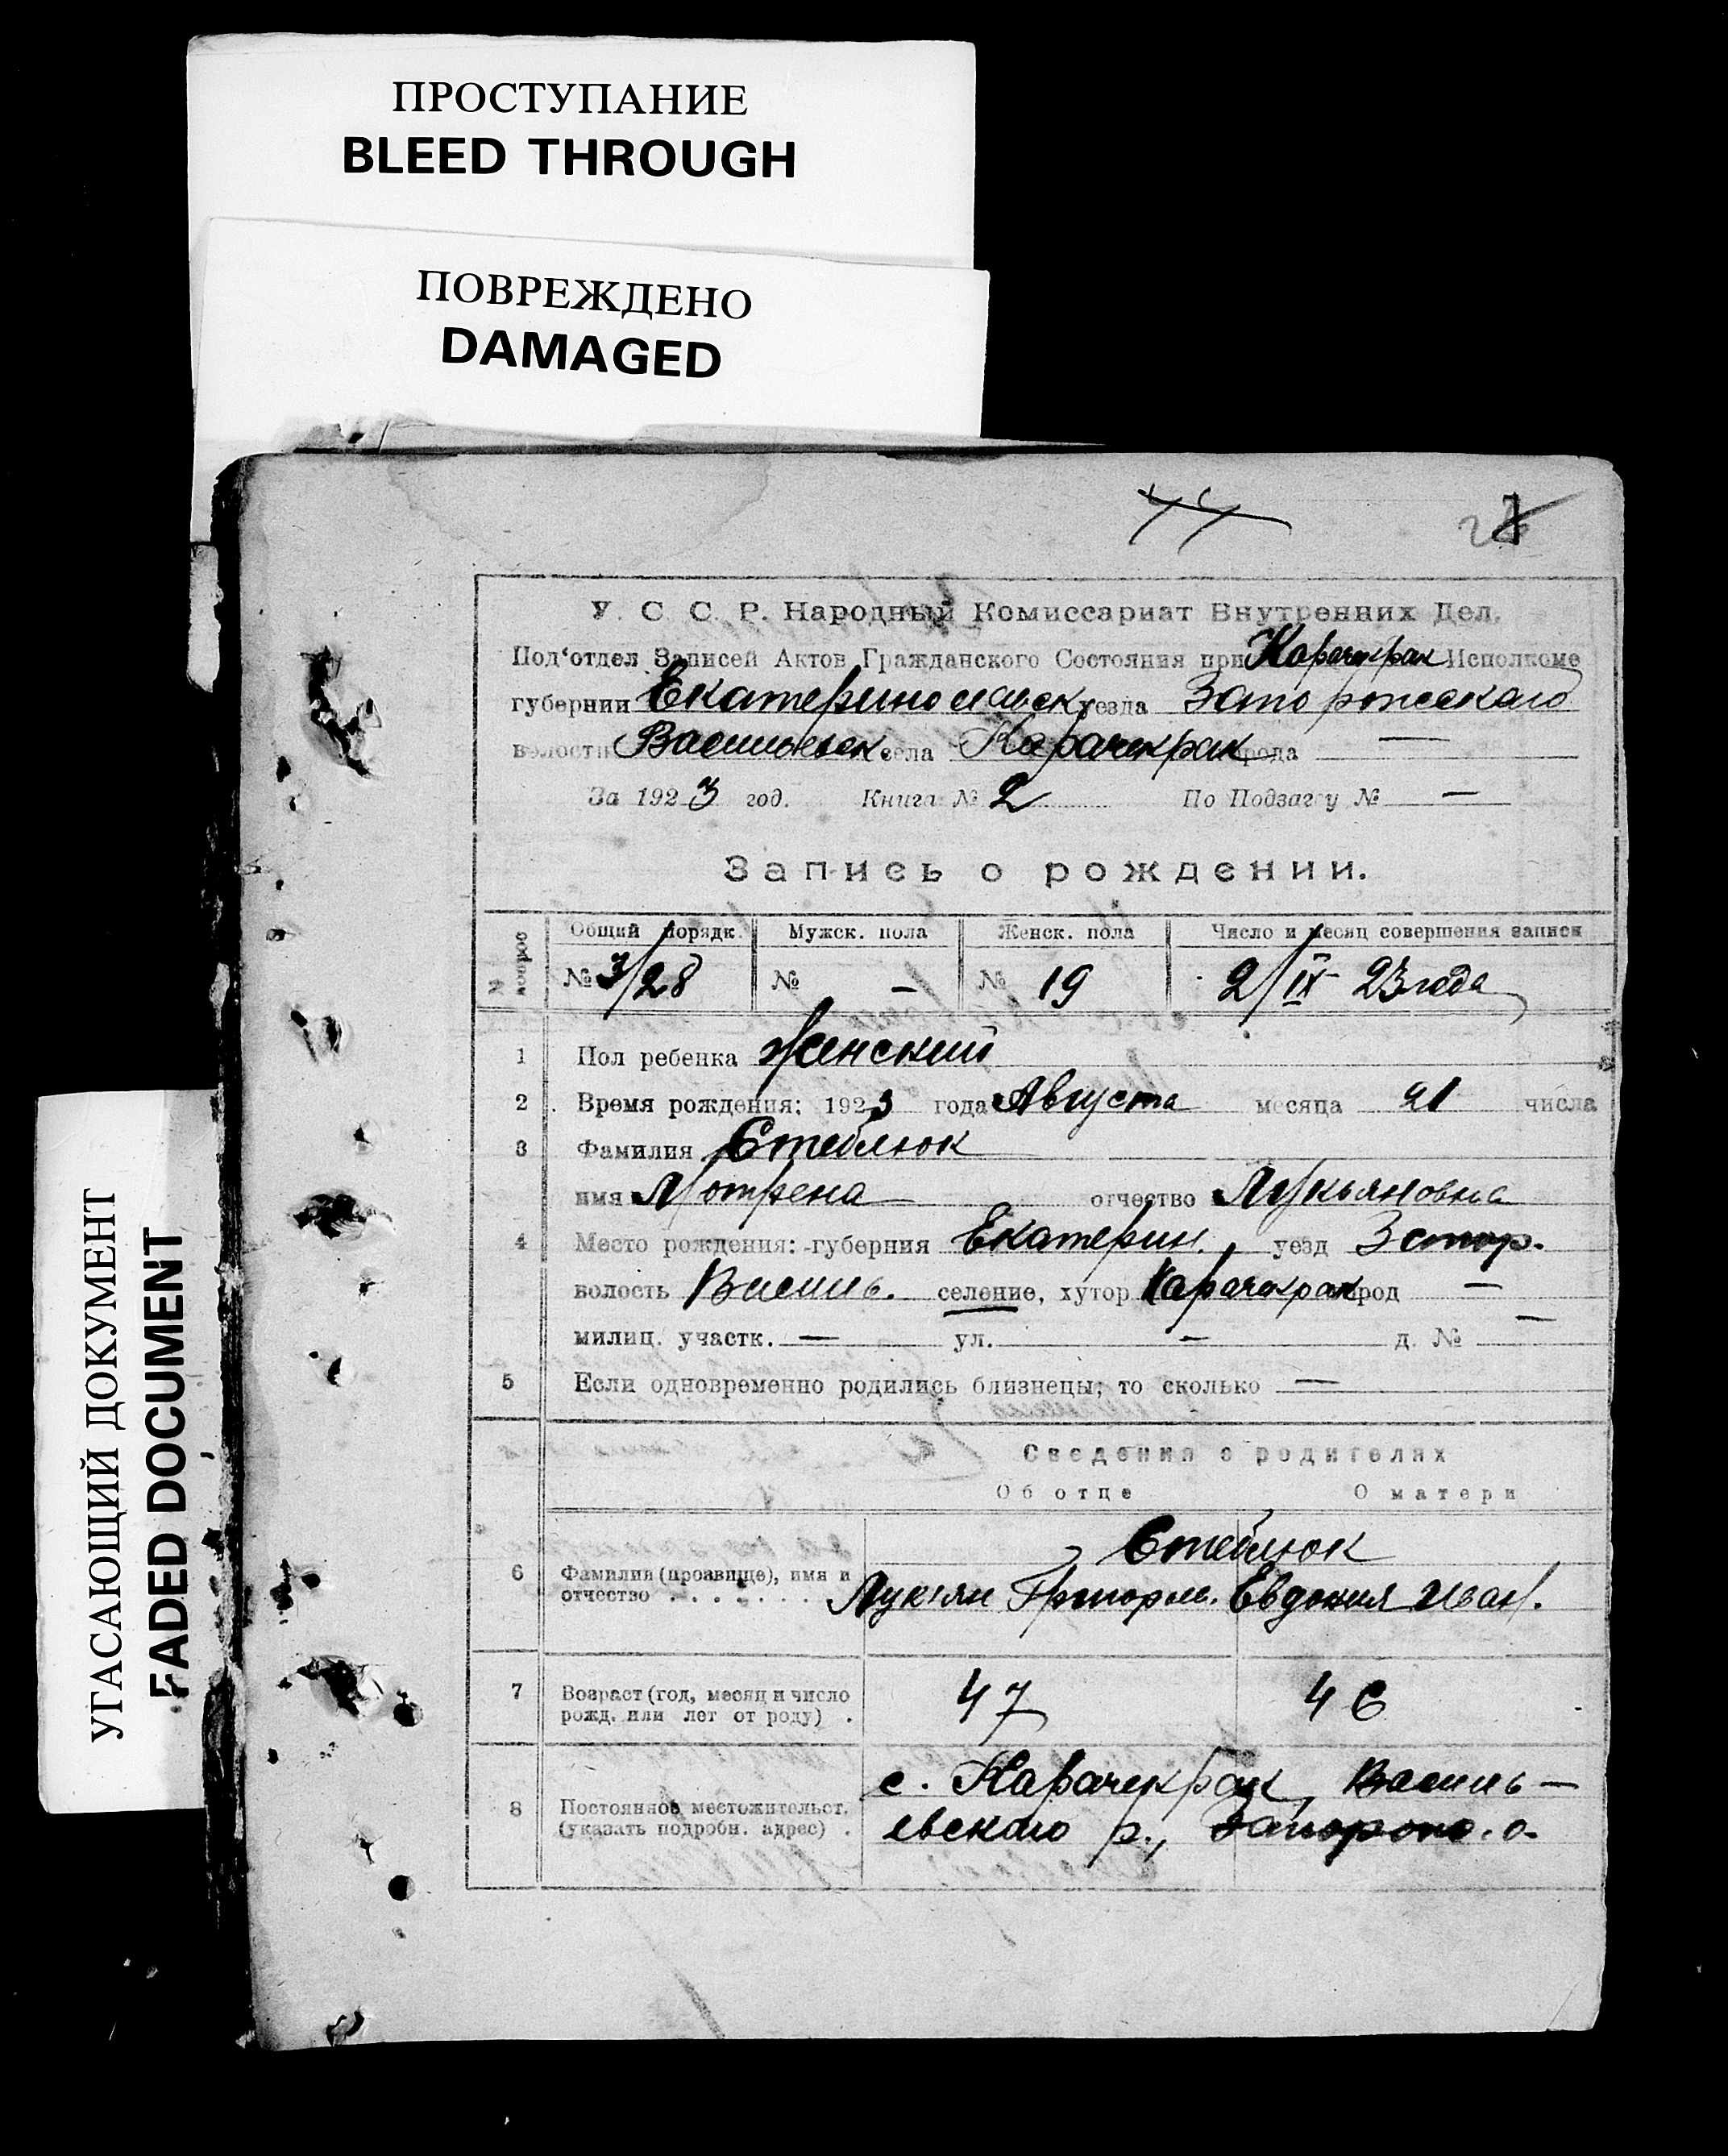 ПРОСТУПАНИЕ
BLEED THROUGH
ПОВРЕЖДЕНО
DAMAGED
УГАСАЮЩИЙ ДОКУМЕНТ
FADED DOCUMENT
У. С. С. Р. Народный Комиссариат Внутренних Дел.
Под'отдел Записей Актов Гражданского Состояния при Карачекрак Исполкоме
губернии Екатеринославск уезда Запорожскаго
волости Васильевск села Карачекрак города —
За 1923 год. Книга № 2 По Подзагсу № —
Запись о рождении.
№ вопрос Общий порядк. Мужск. пола Женск. пола Число и месяц совершения записи
№ 3/28 № — № 19 2/IX 23 года
1 Пол ребенка Женский
2 Время рождения: 1923 года Августа месяца 21 числа
3 Фамилия Стеблюк
имя Мотрена отчество Лукьяновна
4 Место рождения: губерния Екатерин. уезд Запор.
волость Василь. селение, хутор Карачекрак город —
милиц. участк. — ул. — д. № —
5 Если одновременно родились близнецы, то сколько —
Сведения о родителях
Об отце О матери
Стеблюк
6 Фамилия (прозвище), имя и
отчество . . . . . . . Лукьян Григорьев. Евдокия Иван.
7 Возраст (год, месяц и число
рожд. или лет от роду) . 47 46
с. Карачекрак, Василь-
8 Постоянное местожительст.
(указать подробн. адрес) . евского р., Запорож. о.